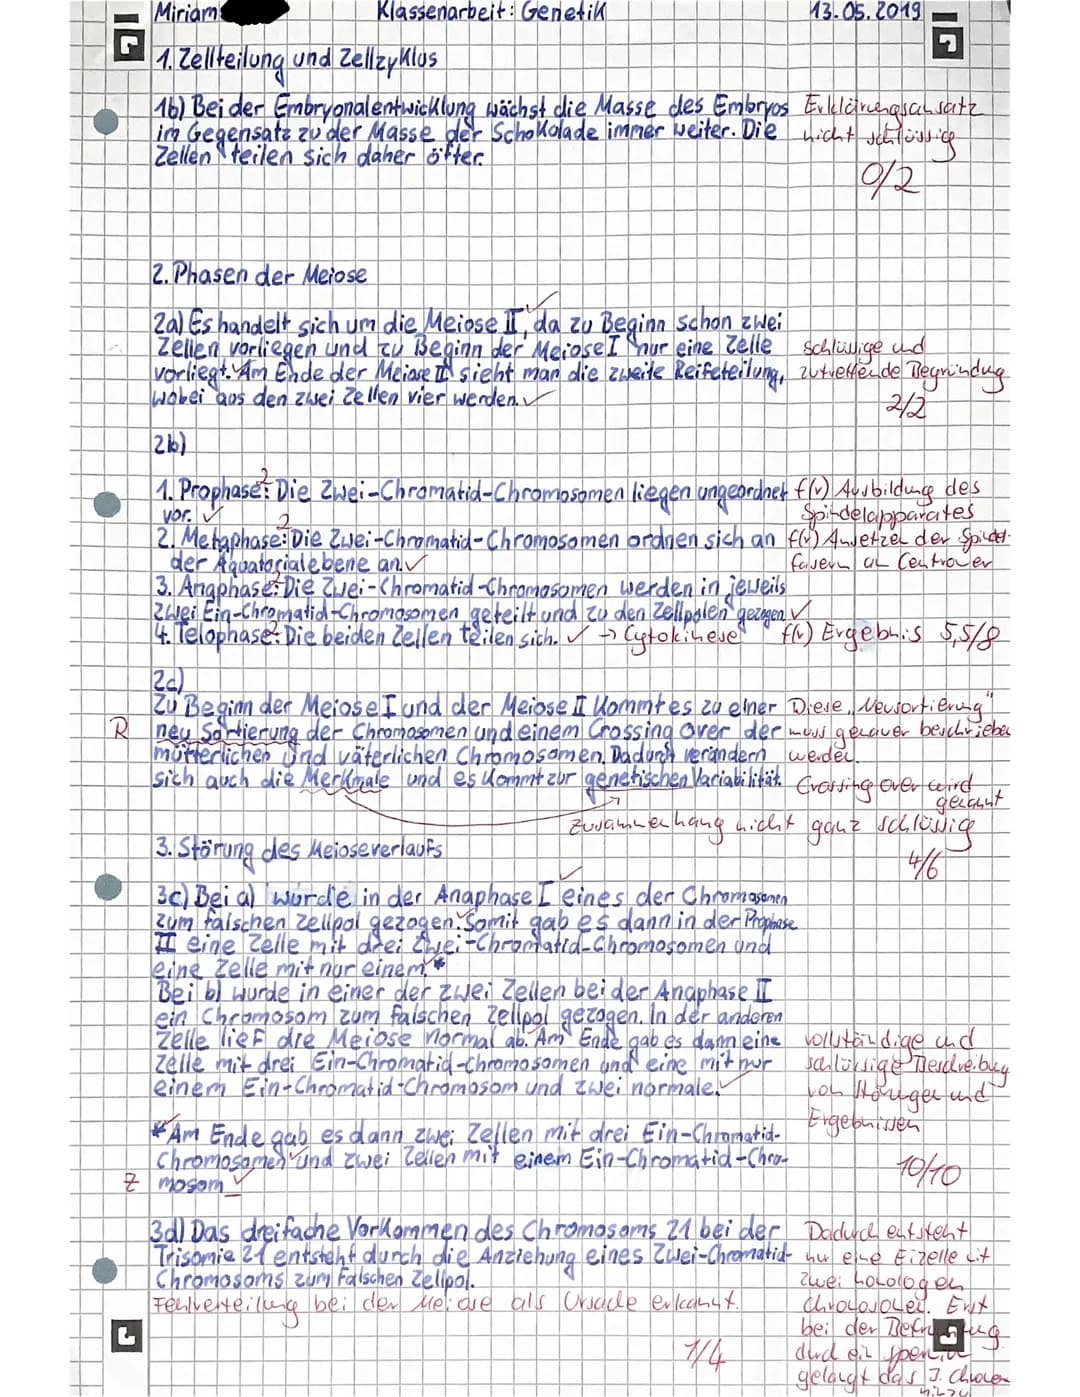 Miriam Klassenarbeit: Genetik 13.05.2019
1. Zellteilung und Zellzyklus
1b) Bei der Embryonalentwicklung wächst die Masse des Embryos Erklärungsansatz
im Gegensatz zu der Masse der Schokolade immer weiter. Die nicht schlüssig
Zellen teilen sich daher öfter.
0/2
2. Phasen der Meiose
2a) Es handelt sich um die Meiose II, da zu Beginn schon zwei
Zellen vorliegen und zu Beginn der Meiose I nur eine Zelle schlüssige und
vorliegt. Am Ende der Meiose II sieht man die zweite Reifeteilung, zutreffende Begründung
wobei aus den zwei Zellen vier werden. 2/2
2b)
1. Prophase: Die Zwei-Chromatid-Chromosomen liegen ungeordnet f(v) Ausbildung des
vor. Spindelapparates
2. Metaphase: Die Zwei-Chromatid-Chromosomen ordnen sich an f(v) Ansetzen der Spindel-
der Äquatorialebene an. fasern an Centromer
3. Anaphase: Die Zwei-Chromatid-Chromosomen werden in jeweils
zwei Ein-Chromatid-Chromosomen geteilt und zu den Zellpolen gezogen.
4. Telophase: Die beiden Zellen teilen sich. → Cytokinese f(v) Ergebnis 5,5/8
2c)
Zu Beginn der Meiose I und der Meiose II kommt es zu einer Diese „Neusortierung"
R neu Sortierung der Chromosomen und einem Crossing over der muss genauer beschrieben
mütterlichen und väterlichen Chromosomen. Dadurch verändern werden.
sich auch die Merkmale und es kommt zur genetischen Variabilität. Crossing over wird
genannt
Zusammenhang nicht ganz schlüssig
3. Störung des Meioseverlaufs 4/6
3c) Bei a) wurde in der Anaphase I eines der Chromosomen
zum falschen Zellpol gezogen. Somit gab es dann in der Prophase
II eine Zelle mit drei Zwei-Chromatid-Chromosomen und
eine Zelle mit nur einem.*
Bei b) wurde in einer der zwei Zellen bei der Anaphase II
ein Chromosom zum falschen Zellpol gezogen. In der anderen
Zelle lief die Meiose normal ab. Am Ende gab es dann eine vollständige und
Zelle mit drei Ein-Chromatid-Chromosomen und eine mit nur schlüssige Beschreibung
einem Ein-Chromatid-Chromosom und zwei normale. von Störungen und
Ergebnissen
*Am Ende gab es dann zwei Zellen mit drei Ein-Chromatid-
Chromosomen und zwei Zellen mit einem Ein-Chromatid-Chro- 10/10
Z mosom
3d) Das dreifache Vorkommen des Chromosoms 21 bei der Dadurch entsteht
Trisomie 21 entsteht durch die Anziehung eines Zwei-Chromatid- nur eine Eizelle mit
Chromosoms zum falschen Zellpol. zwei homologen
Fehlverteilung bei der Meiose als Ursache erkannt. Chromosomen. Erst
bei der Befruchtung
1/4 durch ein
gelangt das 3. Chromo
hinzu